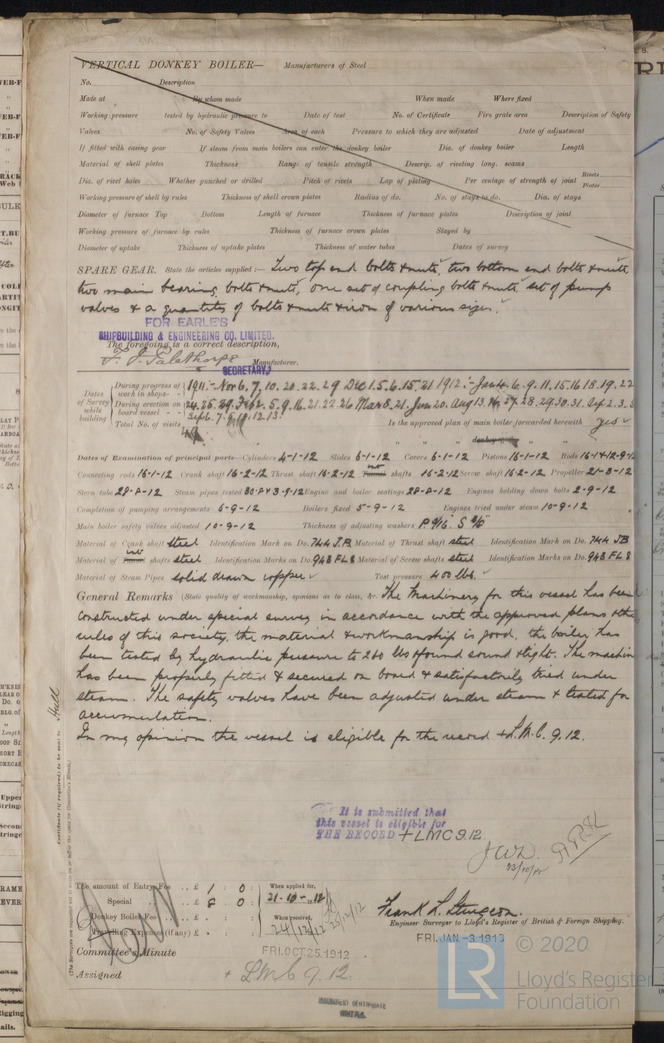 VERTICAL DONKEY BOILER— Manufacturers of Steel
No. Description
Made at By whom made When made Where fixed
Working pressure tested by hydraulic pressure to Date of test No. of Certificate Fire grate area Description of Safety
Valves No. of Safety Valves Area of each Pressure to which they are adjusted Date of adjustment
If fitted with easing gear If steam from main boilers can enter the donkey boiler Dia. of donkey boiler Length
Material of shell plates Thickness Range of tensile strength Descrip. of riveting long. seams
Dia. of rivet holes Whether punched or drilled Pitch of rivets Lap of plating Per centage of strength of joint Rivets Plates
Working pressure of shell by rules Thickness of shell crown plates Radius of do. No. of stays to do. Dia. of stays
Diameter of furnace Top Bottom Length of furnace Thickness of furnace plates Description of joint
Working pressure of furnace by rules Thickness of furnace crown plates Stayed by
Diameter of uptake Thickness of uptake plates Thickness of water tubes Dates of survey
SPARE GEAR. State the articles supplied:— Two top end bolts & nuts, two bottom end bolts & nuts,
two main bearing bolts & nuts, one set of coupling bolts & nuts set of pump
valves & a quantity of bolts & nuts & iron of various sizes.
FOR EARLE'S
SHIPBUILDING & ENGINEERING CO. LIMITED.
The foregoing is a correct description,
Manufacturer.
SECRETARY
Dates of Survey while building
During progress of work in shops - - 1911:- Nov 6. 7. 10. 20. 22. 29 Dec 1. 5. 6. 15. 21 1912:- Jan 4. 6. 9. 11. 15. 16. 18. 19. 22
During erection on board vessel - - 24. 25. 29. Feb 2. 5. 9. 16. 21. 22. 26 Mar 8. 21. Jun 20. Aug 13. 27. 28. 29. 30. 31. Sep 2. 3.
Total No. of visits Is the approved plan of main boiler forwarded herewith yes
" " " donkey " " "
Dates of Examination of principal parts—Cylinders 4-1-12 Slides 6-1-12 Covers 6-1-12 Pistons 16-1-12 Rods
Connecting rods 16-1-12 Crank shaft 16-2-12 Thrust shaft 16-2-12 Tunnel shafts 16-2-12 Screw shaft 16-2-12 Propeller 21-3-12
Stern tube 28-8-12 Steam pipes tested Engine and boiler seatings 28-8-12 Engines holding down bolts 2-9-12
Completion of pumping arrangements 6-9-12 Boilers fixed 5-9-12 Engines tried under steam 10-9-12
Main boiler safety valves adjusted 10-9-12 Thickness of adjusting washers
Material of Crank shaft steel Identification Mark on Do. 744 J.B. Material of Thrust shaft steel Identification Mark on Do. 744 JB
Material of Tunnel shafts steel Identification Marks on Do. 943 FLS Material of Screw shafts steel Identification Marks on Do. 943 FLS
Material of Steam Pipes solid drawn copper Test pressure 400 lbs.
General Remarks (State quality of workmanship, opinions as to class, &c. The Machinery for this vessel has been
constructed under special survey in accordance with the approved plans & the
rules of this society, the material & workmanship is good, the boiler has
been tested by hydraulic pressure to 260 lbs & found sound & tight. The machin
has been properly fitted & secured on board & satisfactorily tried under
steam. The safety valves have been adjusted under steam & tested for
accumulation.
In my opinion the vessel is eligible for the record + L.M.C. 9. 12.
Hull
It is submitted that
this vessel is eligible for
THE RECORD + LMC 9.12
The amount of Entry Fee .. £ 1 : 0 : When applied for,
Special .. £ 8 : 0 : 21-10-12
Donkey Boiler Fee .. £ : : When received,
Travelling Expenses (if any) £ : : 24/12/12
Frank L. Sturgeon.
Engineer Surveyor to Lloyd's Register of British & Foreign Shipping.
Committee's Minute FRI. OCT 25. 1912 FRI. JAN-3 1913
Assigned + L.M.C. 9. 12.
© 2020
LR
Lloyd's Register
Foundation